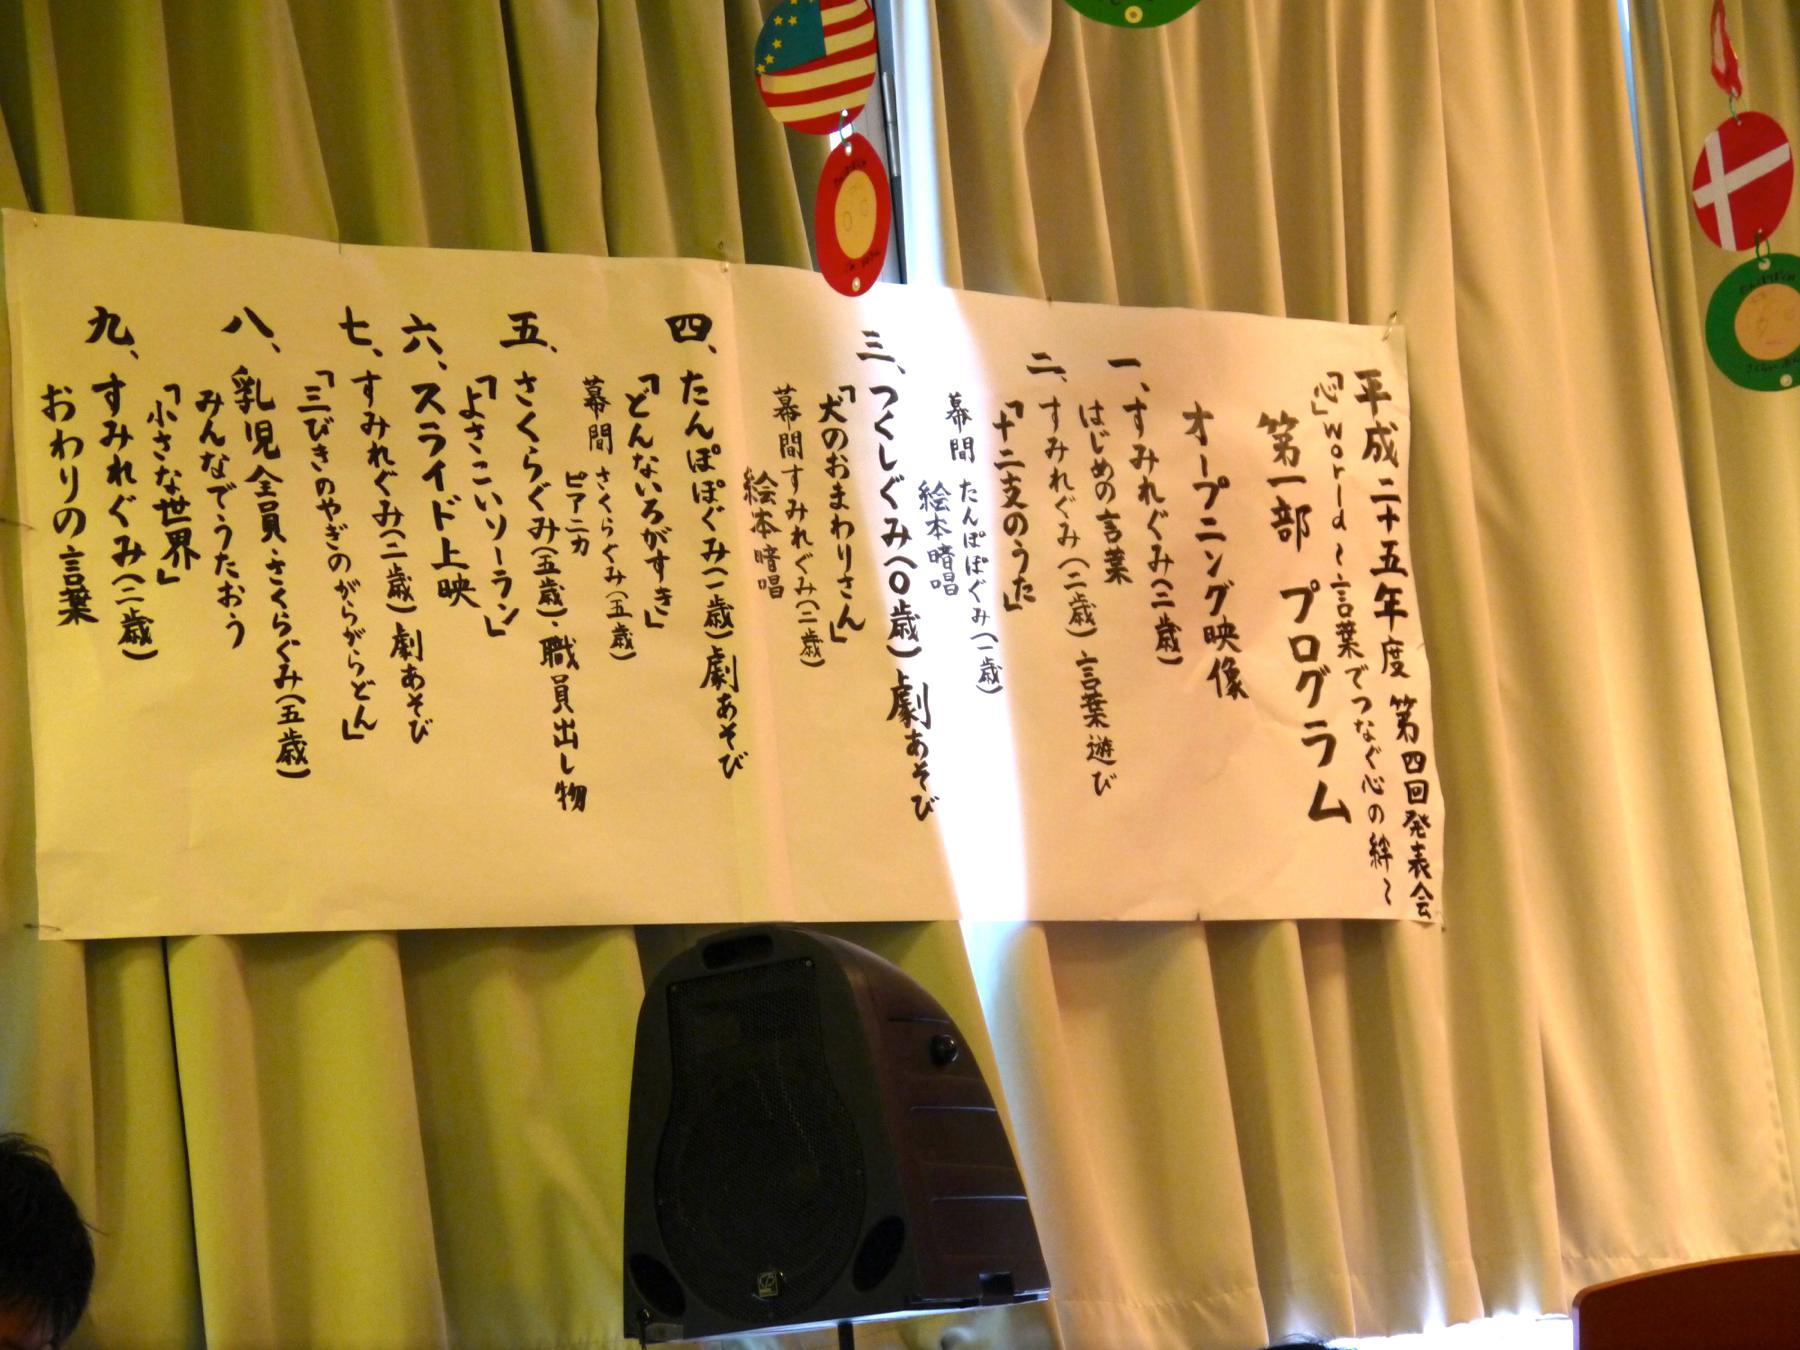 平成二十五年度 第四回発表会
「心」world~言葉でつなぐ心の絆~
第一部 プログラム
オープニング映像
一、すみれぐみ(二歳)
はじめの言葉
二、すみれぐみ(二歳)言葉遊び
「十二支のうた」
幕間 たんぽぽぐみ(一歳)
絵本暗唱
三、つくしぐみ(0歳)劇あそび
「犬のおまわりさん」
幕間すみれぐみ(二歳)
絵本暗唱
四、たんぽぽぐみ(一歳)劇あそび
「どんないろがすき」
幕間 さくらぐみ(五歳)
ピアニカ
五、さくらぐみ(五歳)・職員出し物
「よさこいソーラン」
六、スライド上映
七、すみれぐみ(二歳)劇あそび
「三びきのやぎのがらがらどん」
八、乳児全員・さくらぐみ(五歳)
みんなでうたおう
「小さな世界」
九、すみれぐみ(二歳)
おわりの言葉